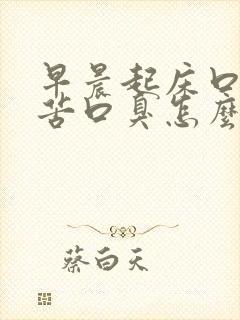 早晨起床口
苦口臭怎麼
蔡白天